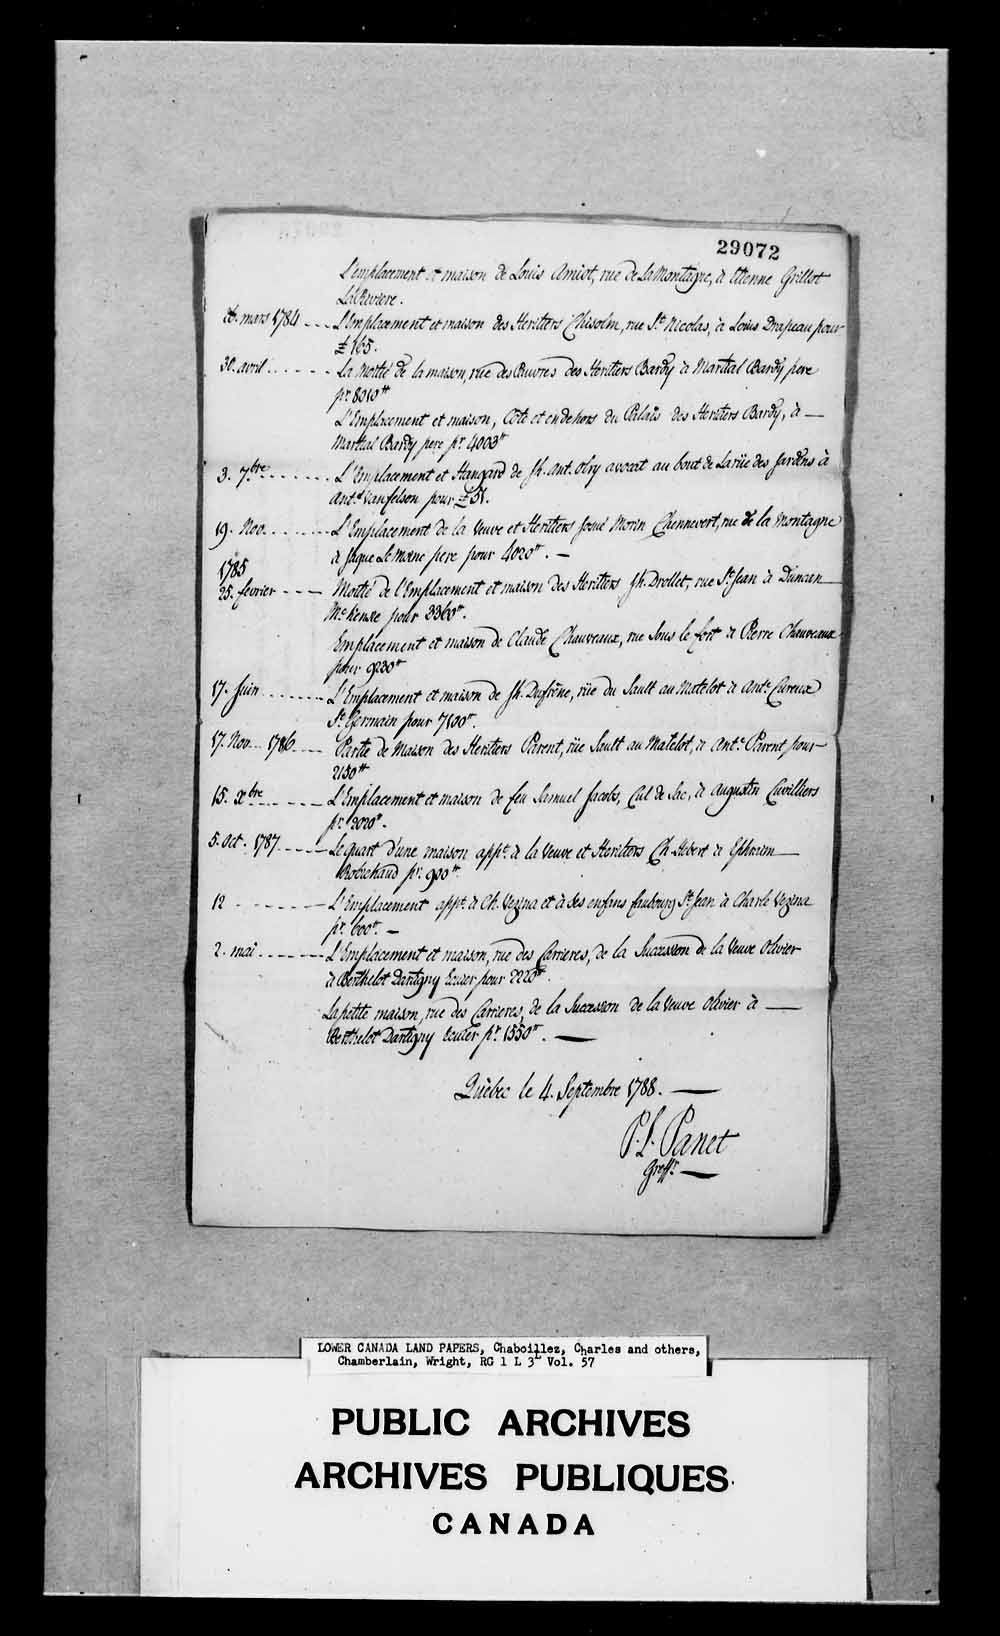 29072
L'emplacement et maison de Louis Amiot, rue de La Montagne, à Etienne Grillot
LaRiviere.
26. mars 1784 --- L'Emplacement et maison des Heritiers Chisolm, rue St. Nicolas, à Louis Drapeau pour
£165.
30. avril ------ La Moitié de la maison, rue des Pauvres des Heritiers Bardy à Martial Bardy pere
pr. 8010tt
L'Emplacement et maison, Côté et en dehors du Palais des Heritiers Bardy, à —
Martial Bardy pere pr. 4003tt
3. 7bre ------ L'Emplacement et Hangard de Jh. Ant. Olry avocat au bout de La rüe des Jardins à
Ant. Vanfelson pour £51.
19. Nov. ------ L'Emplacement de la Veuve et Heritiers Josué Morin Chennevert, rue de la Montagne
à Jaque Le Moine pere pour 4020tt. —
1785
25. fevrier --- Moitié de l'Emplacement et maison des Heritiers Jh. Drollet, rue St. Jean à Duncan
McKensie pour 3360tt.
Emplacement et maison de Claude Chauveaux, rue Sous le fort à Pierre Chauveaux
pour 9230tt
17. Juin ------ L'Emplacement et maison de Jh. Dufrêne, rüe du Sault au Matelot à Ant. Cureux
St. Germain pour 7100tt.
17. Nov. 1786 --- Partie de Maison des Heritiers Parent, rüe Sault au Matelot, à Ant. Parent pour
2150tt
15. Xbre ------ L'Emplacement et maison de feu Samuel Jacobs, Cul de Sac, à Augustin Cuvilliers
pr. 2020tt.
5. Oct. 1787 ---- Le quart d'une maison appt. à la Veuve et Heritiers Ch. Hébert à Ephraim
Robichaud pr. 900tt.
12 ------ L'Emplacement appt. à Ch. Vezina et à ses enfans faubourg St. Jean à Charle Vezina
pr. 600tt. —
2. mai ------ L'Emplacement et maison, rue des Carrieres, de la Succession de la Veuve Olivier
à Berthelot Dartigny Ecuier pour 2220tt.
La petite maison, rue des Carrieres, de la Succession de la Veuve Olivier à —
Berthelot Dartigny Ecuier pr. 1550tt. —
Québec le 4. Septembre 1788. —
P. L. Panet
Greffr. —
LOWER CANADA LAND PAPERS, Chaboillez, Charles and others,
Chamberlain, Wright, RG 1 L 3L Vol. 57
PUBLIC ARCHIVES
ARCHIVES PUBLIQUES
CANADA